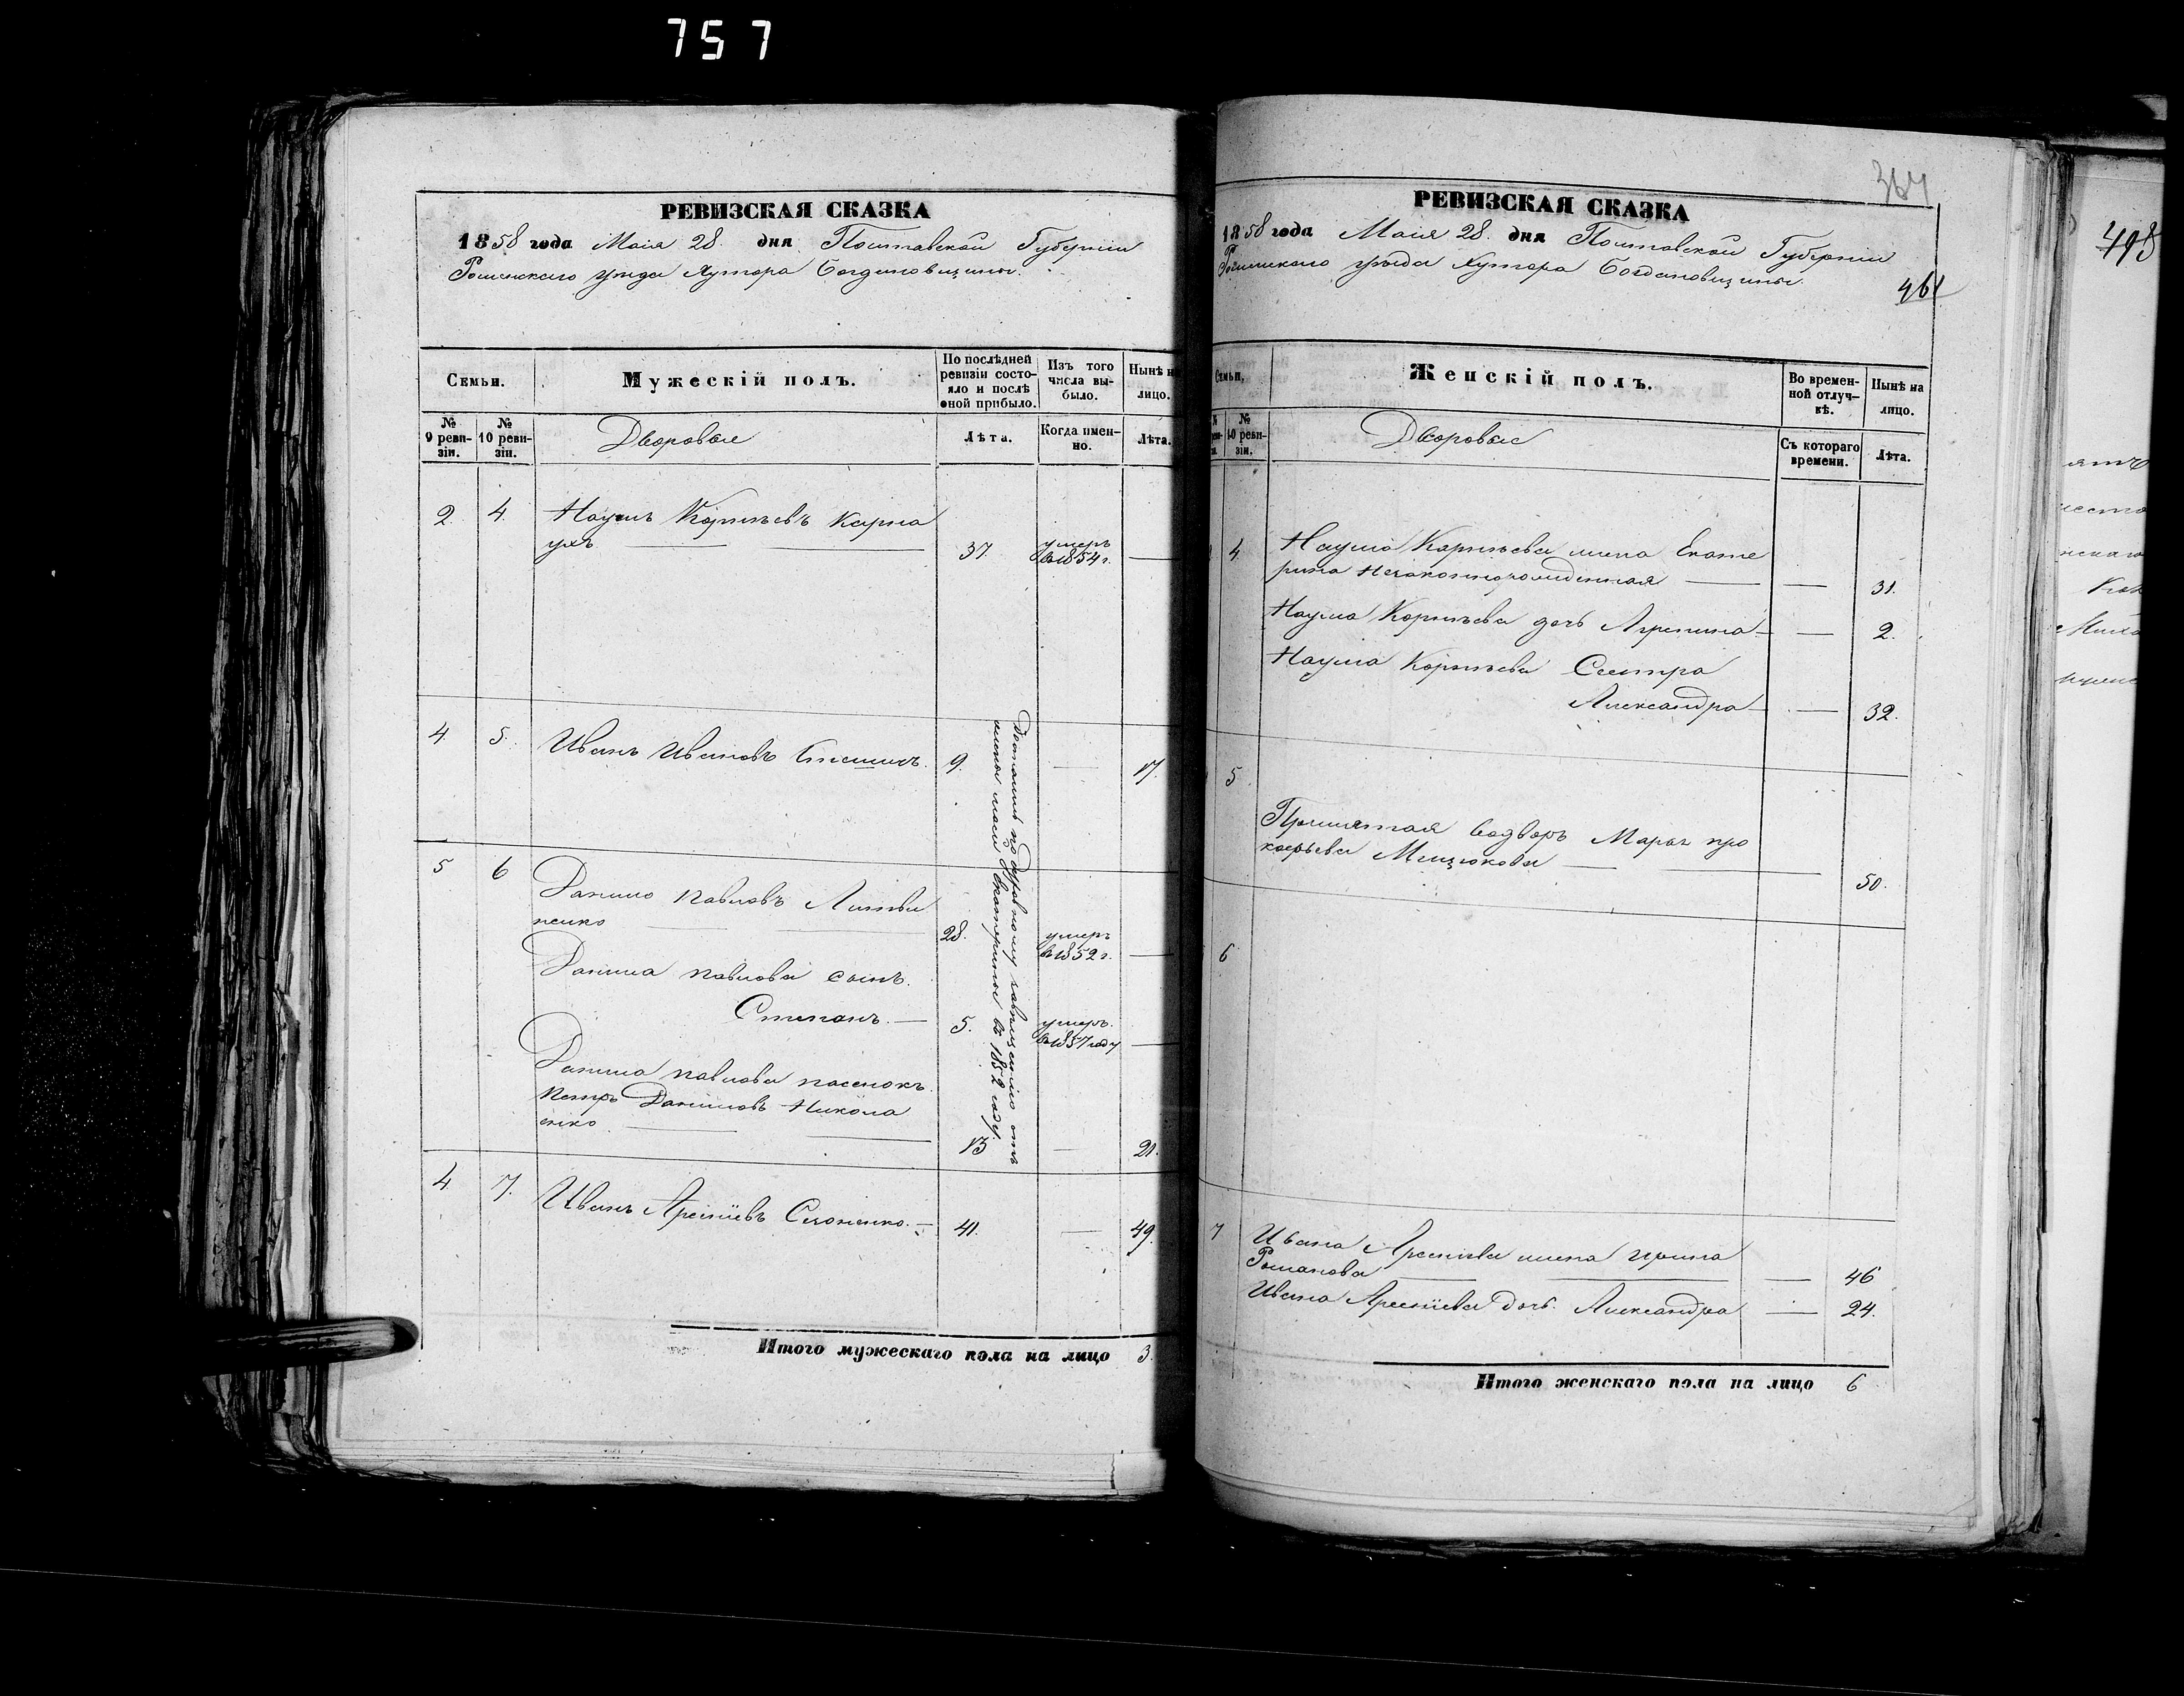 757
РЕВИЗСКАЯ СКАЗКА
1858 года Маія 28. дня Полтавской Губерніи
Роменскаго уѣзда Хутора Богдановщины.
Семьи.
Мужескій полъ.
По послѣдней ревизіи состояло и послѣ оной прибыло.
Изъ того числа выбыло.
Нынѣ на лицо.
№ 9 ревизіи.
№ 10 ревизіи.
Дворовые
Лѣта.
Когда именно.
Лѣта.
2. 4. Наумъ Корнѣевъ Карна
ухъ 37. умеръ в 1854 г.
4. 5. Иванъ Ивановъ 9. 17.
5 6 Данило Павловъ Литви
ненко 28. умеръ в 1852 г.
Данила Павлова сынъ.
Степанъ. 5. умеръ. в 1857 году
Данила Павлова пасенокъ.
Петръ Даниловъ Никола
енко 13 21.
Достались по духовному завѣщанію отъ
жены моей Екатерины въ 1852 году
4 7. Иванъ Арсеніевъ 41. 49.
Итого мужескаго пола на лицо 3.
364
РЕВИЗСКАЯ СКАЗКА
1858 года Маія 28. дня Полтавской Губерніи
Роменскаго уѣзда Хутора Богдановщины.
461
Семьи.
Женскій полъ.
Во временной отлучкѣ.
Нынѣ на лицо.
№ 10 ревизіи.
Дворовые
Съ котораго времени.
Лѣта.
4. Наума Корнѣева жена Екате
рина Незаконнорожденная 31.
Наума Корнѣева дочь Агрепина 2.
Наума Корнѣева Сестра
Александра 32.
5
Принятая водворъ Марья про
кофьева 50.
6
7 Ивана Арсеніева жена Ирина
Романова 46
Ивана Арсеніева дочь. Александра 24.
Итого женскаго пола на лицо 6
498